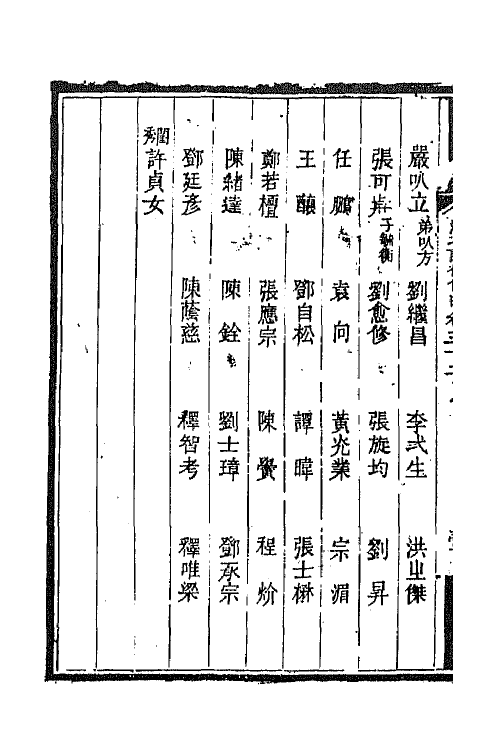 嚴以立 弟以方 劉繼昌 李弌生 洪山傑
張可 劉愈修 張旋均 劉昇
任鵬 袁向 黃光業 宗湄
王釀 鄧自松 譚暐 張士楙
鄭若檀 張應宗 陳黌 程炌
陳緒達 陳銓 劉士璋 鄧承宗
鄧廷彥 陳蔭慈 釋智考 釋唯梁
閨秀 許貞女